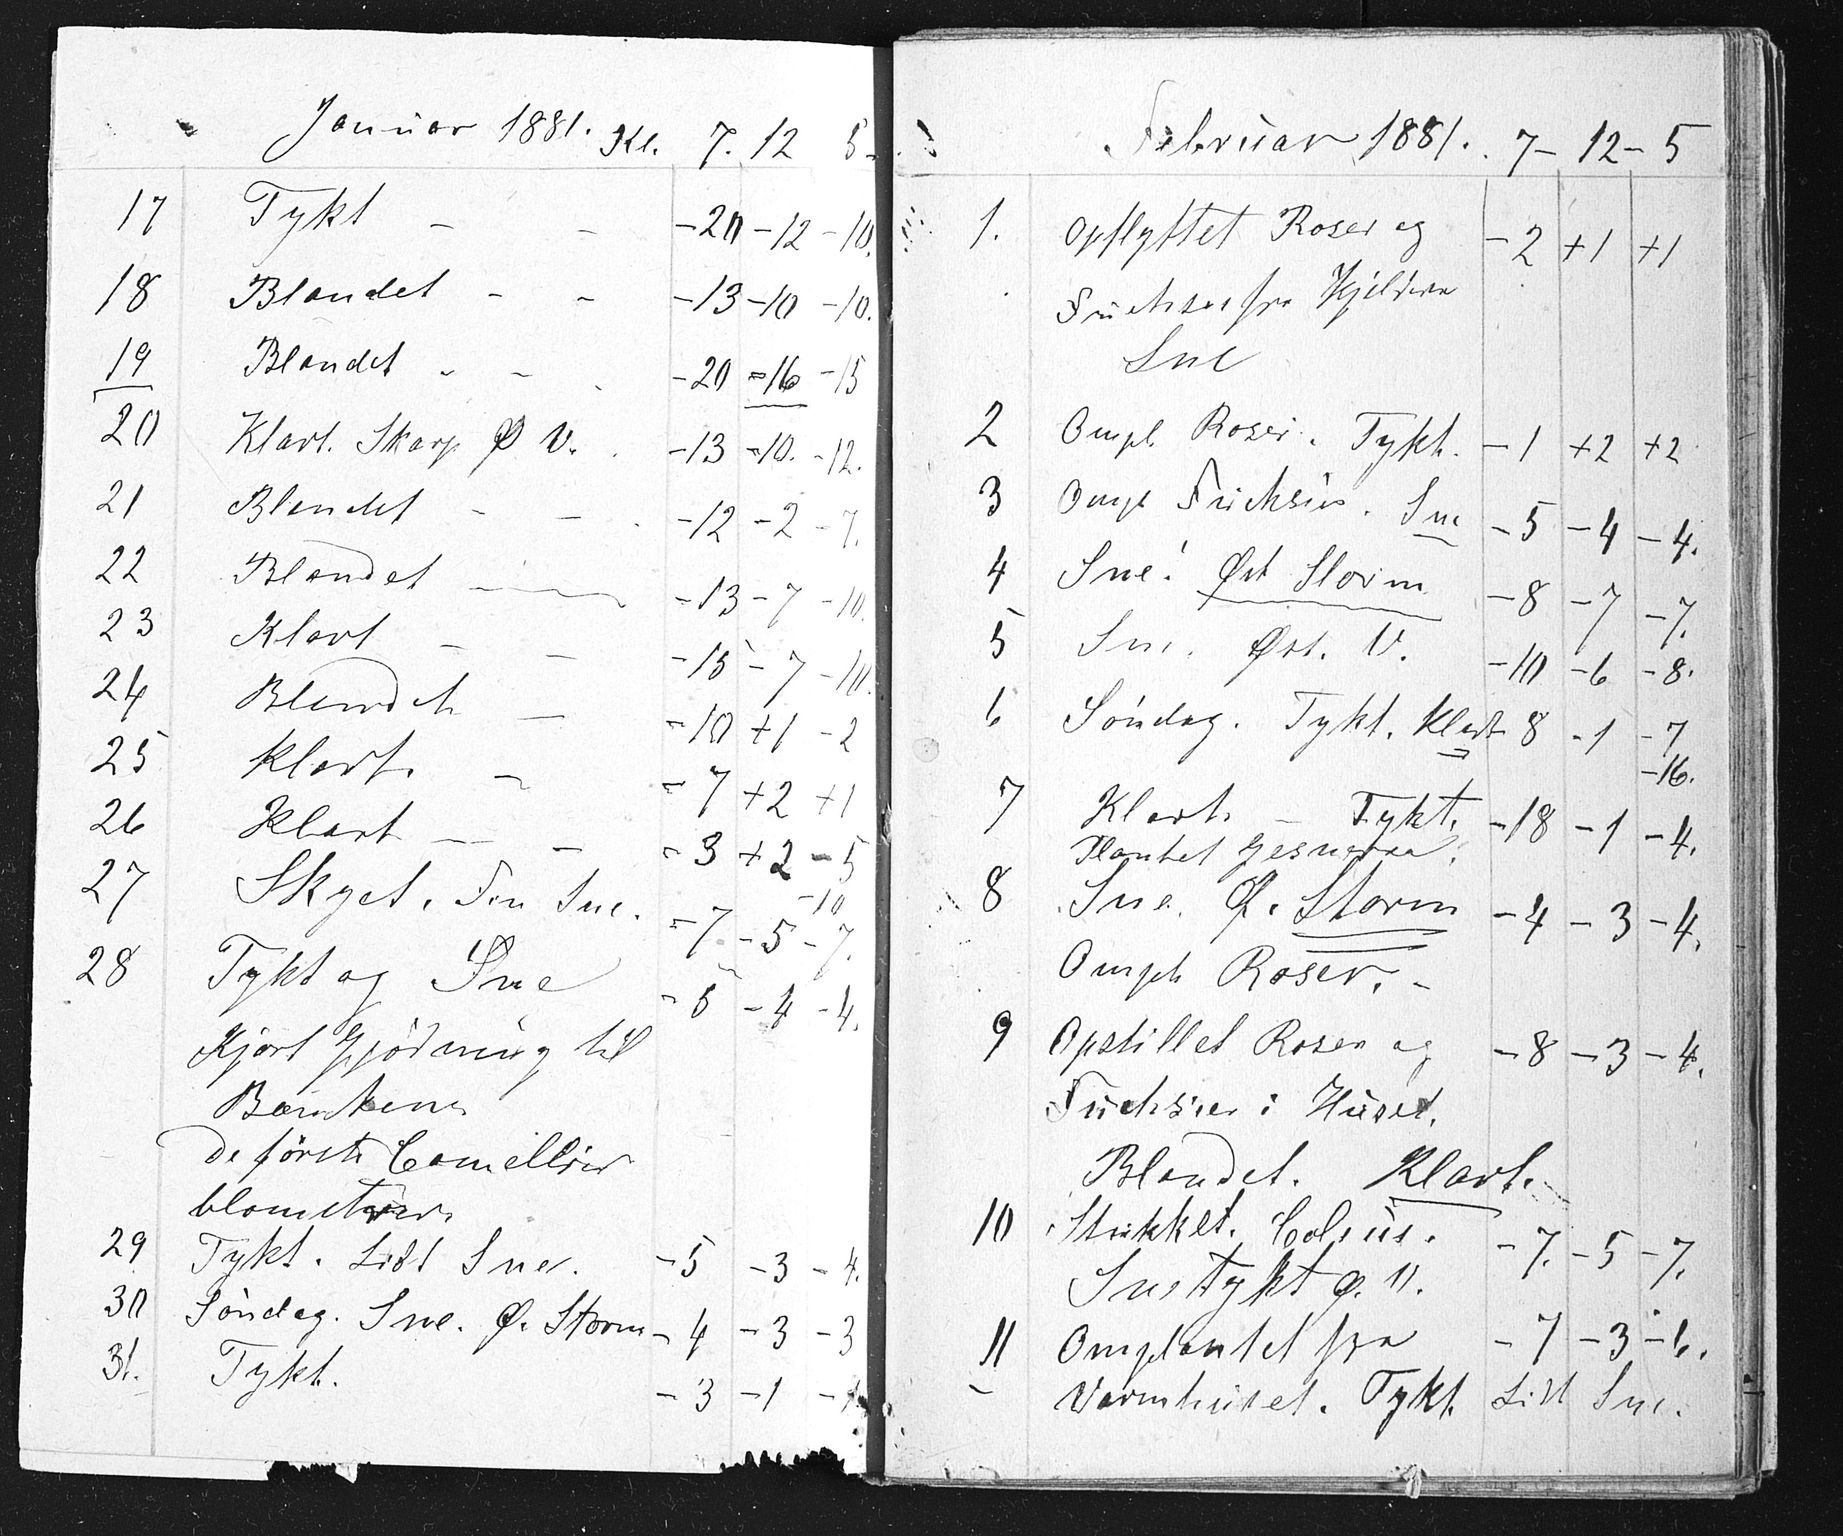 Januar 1881. Kl. 7. 12 5.
17 Tykt - - -20 -12 -10.
18 Blandet - - -13 -10 -10.
19 Blandet - - - -20 -16 -15
20 Klart. Skarp Ø V. -13 -10. -12.
21 Blandet - - - -12 -2 -7.
22 Blandet - - -13 -7 -10.
23 Klart - - -15 -7 -10.
24 Blandet - -10 +1 -2
25 Klart. - -7 +2 +1
26 Klart - - -3 +2 -5
-10
27 Skyet. Fin Sne. -7 -5 -7.
28 Tykt og Sne -5 -4 -4.
Kjørt Gjødning til
Bænkene
de første Camellier
29 Tykt. Lidt Sne. -5 -3 -4.
30 Søndag. Sne. Ø. Storm -4 -3 -3
31. Tykt. -3 -1
Februar 1881. 7- 12- 5
1. Opflyttet Roser og -2 +1 +1
Fuchsier fra Kjelderen
Sne
2 Ompl. Roser. Tykt. -1 +2 +2
3 Ompl Fuchsier. Sne -5 -4 -4.
4 Sne! Øst Storm -8 -7 -7.
5 Sne. Øst. V. -10 -6 -8.
6 Søndag. Tykt. Klart -8 -1 -7
-16.
7 Klart. - Tykt. -18 -1 -4.
Plantet Gesneria.
8 Sne. Ø. Storm -4 -3 -4.
Ompl. Roser. -
9 Opstillet Roser og -8 -3 -4.
Fuchsier i Huset.
Blandet. Klart.
10 Stikket. Coleus. -7. -5 -7.
Snetykt Ø. V.
11 Omplantet fra -7 -3 -6.
- Varmhuset. Tykt. Lidt Sne.